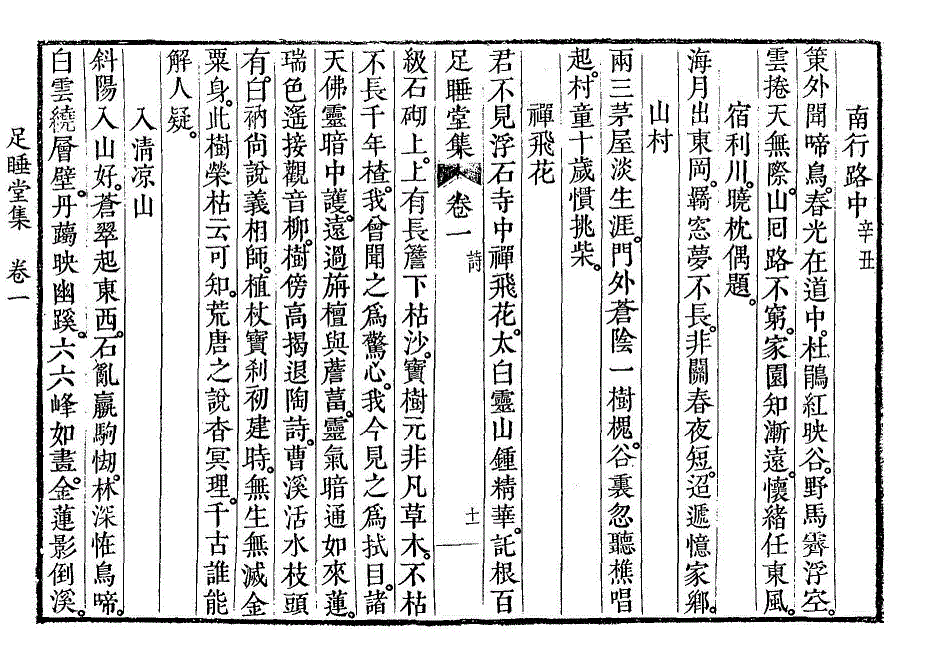 南行路中辛丑
策外聞啼鳥。春光在道中。杜鵑紅映谷。野馬霽浮空。
雲捲天無際。山回路不窮。家園知漸遠。懷緖任東風。
宿利川。曉枕偶題。
海月出東岡。羈窓夢不長。非關春夜短。迢遞憶家鄕。
山村
兩三茅屋淡生涯。門外蒼陰一樹槐。谷裏忽聽樵唱
起。村童十歲慣挑柴。
禪飛花
君不見浮石寺中禪飛花。太白靈山鍾精華。託根百
足睡堂集 卷一 詩 十一
級石砌上。上有長簷下枯沙。寶樹元非凡草木。不枯
不長千年楂。我曾聞之爲驚心。我今見之爲拭目。諸
天佛靈暗中護。遠過旃檀與薝蔔。靈氣暗通如來蓮。
瑞色遙接觀音柳。樹傍高揭退陶詩。曹溪活水枝頭
有。白衲尙說義相師。植杖寶刹初建時。無生無滅金
粟身。此樹榮枯云可知。荒唐之說杳冥理。千古誰能
解人疑。
入淸凉山
斜陽入山好。蒼翠起東西。石亂羸駒㥘。林深恠鳥啼。
白雲繞層壁。丹蕚映幽蹊。六六峰如畫。金蓮影倒溪。
足睡堂集 卷一